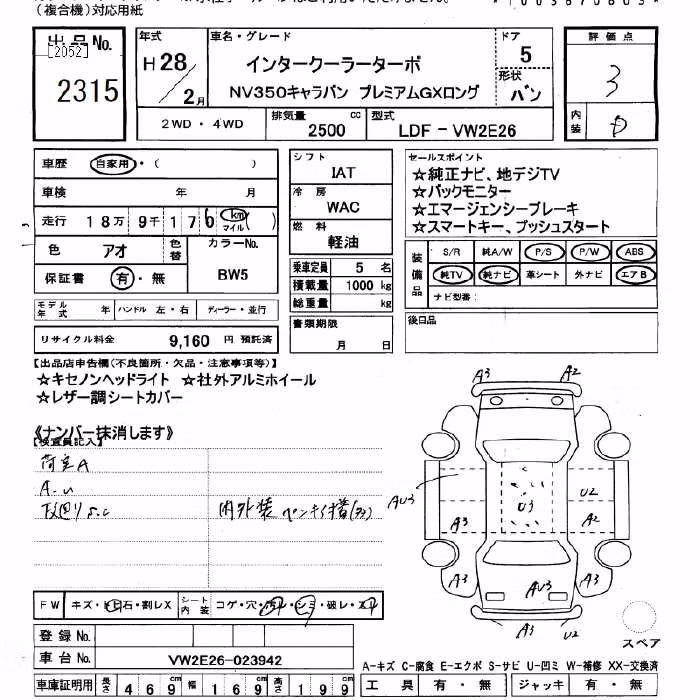 (複合機)対応用紙
出品No.
[2052]
2315
年式
H28
2月
車名・グレード
インタークーラーターボ
NV350キャラバン プレミアムGXロング
ドア
5
形状
バン
評価点
3
内装
D
2WD・4WD
排気量 2500 cc
型式 LDF-VW2E26
車歴 自家用・( )
車検 年 月
走行 18万9千170 km マイル ( )
色 アオ 色替
カラーNo. BW5
保証書 有・無
モデル年式 年 ハンドル 左・右 ディーラー・並行
リサイクル料金 9,160 円 預託済
シフト
IAT
冷房
WAC
燃料
軽油
乗車定員 5 名
積載量 1000 kg
総重量 kg
書類期限
月 日
セールスポイント
☆純正ナビ、地デジTV
☆バックモニター
☆エマージェンシーブレーキ
☆スマートキー、プッシュスタート
装備品
S/R 純A/W P/S P/W ABS
純TV 純ナビ 革シート 外ナビ エアB
ナビ型番:
後日品
【出品店申告欄(不良箇所・欠品・注意事項等)】
☆キセノンヘッドライト ☆社外アルミホイール
☆レザー調シートカバー
《ナンバー抹消します》
【検査員記入】
荷室A
A.U
下廻りS.C
内外装ペンキ付着(多)
A3 A2
AU3 U3 U2
A3 A2
A3 AU3 A3
A3 U2
スペア
FW キズ・トビ石・割レX シート内装 コゲ・穴・汚レ・シミ・破レ・スレ
登録No.
車台No. VW2E26-023942
車庫証明用 長さ 469cm 幅 169cm 高さ 199cm
A-キズ C-腐食 E-エクボ S-サビ U-凹ミ W-補修 XX-交換済
工具 有・無 ジャッキ 有・無